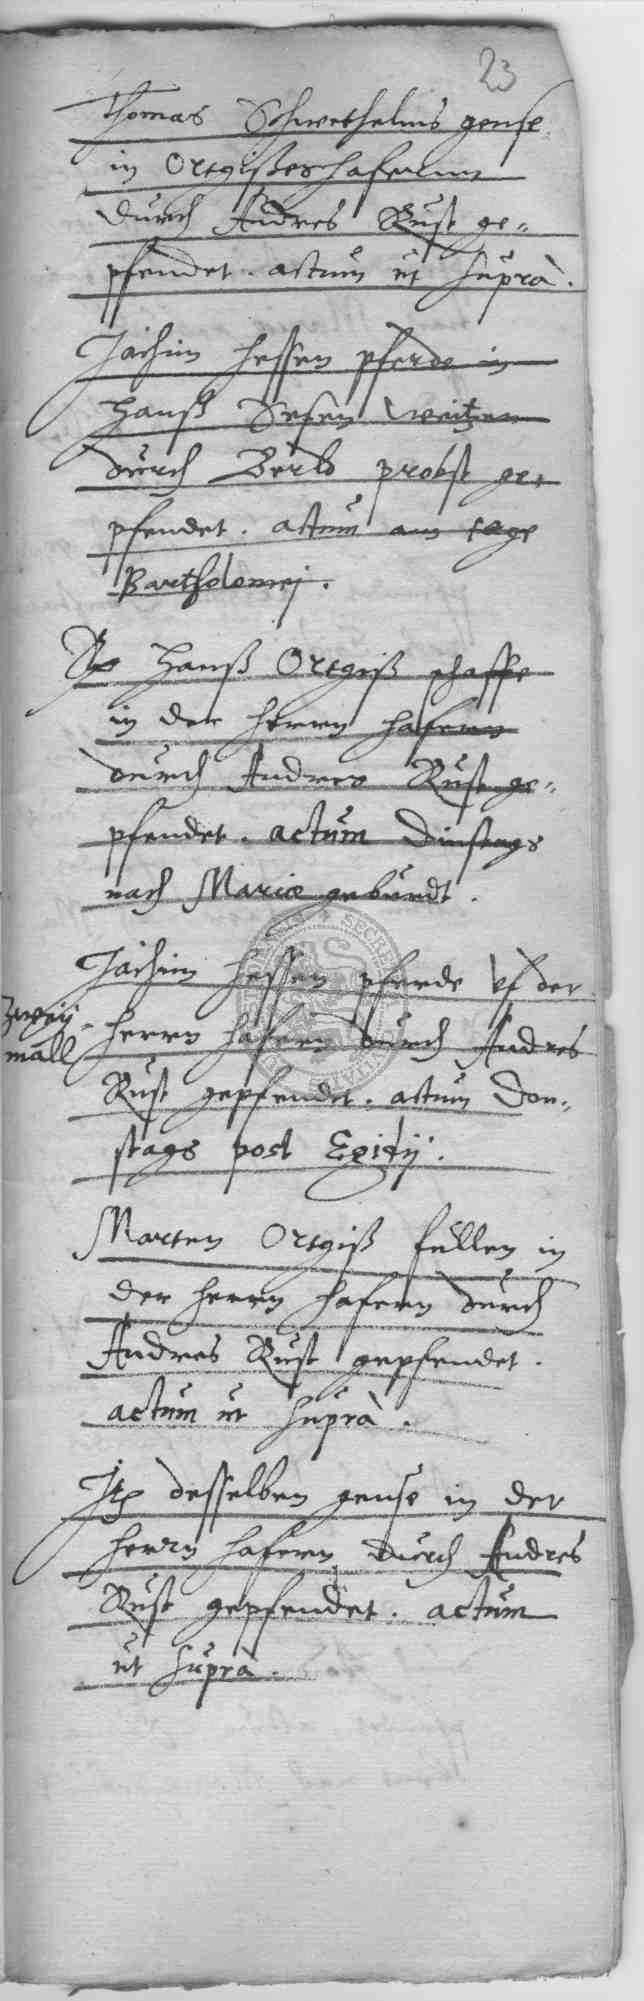 23
Thomas Schwethelms gense
in Ortgißes hafern
durch Andres Rust ge-
pfendet. actum ut suprà.
Jachim Hessen pferde in
Hanß Sesen weitzen
durch Berld probst ge-
pfendet. actum am tage
Bartholomej.
Hanß Ortgiß schaffe
in der herrn hafern
durch Andres Rust ge-
pfendet. actum Dinstags
nach Mariæ geburdt.
Jachim Hessen pferde vf der
zweij-
mall
herrn hafern durch Andres
Rust gepfendet. actum Don-
stags post Egidij.
Marten Ortgiß fullen in
der herrn hafern durch
Andres Rust gepfendet.
actum ut suprà.
Itp desselben gense in der
herrn hafern durch Andres
Rust gepfendet. actum
ut suprà.